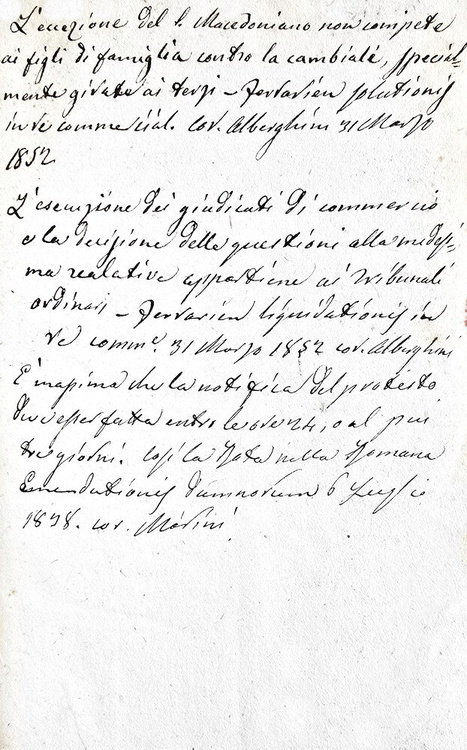 L'eccezione del S. Macedoniano non compete
ai figli di famiglia contro la cambiale, special-
mente girata ai terzi - Ferrarien solutionis
in re commercial. cor. Alberghini 31 Marzo
1852
L'esecuzione dei giudicati di commercio
e la decisione delle questioni alla medesi-
ma realative appartiene ai tribunali
ordinarj - Ferrarien liquidationis in
re comm. 31 Marzo 1852 cor. Alberghini
È massima che la notifica del protesto
deve esser fatta entro le ore 24, o al più
tre giorni. Così la Rota nella Romana
Emendationis damnorum 6 Luglio
1838. cor. Marini